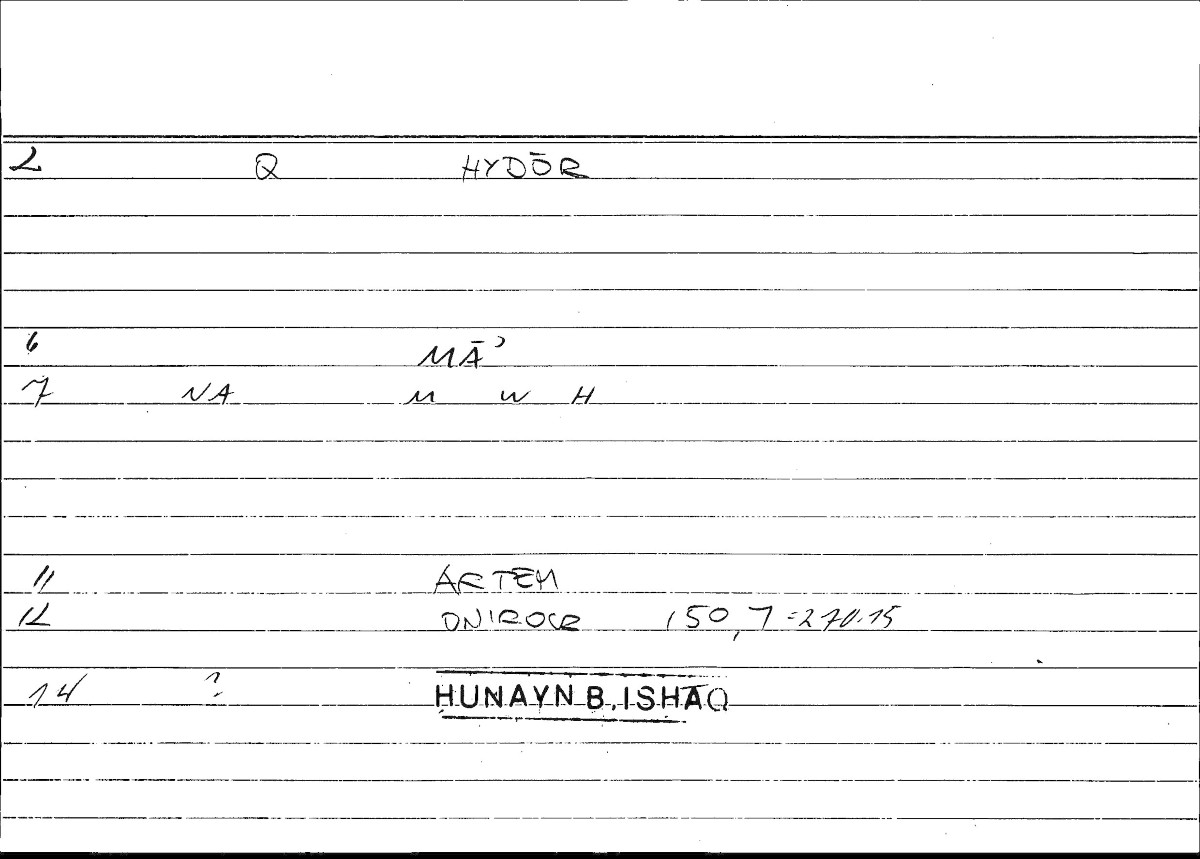 2 Q HYDŌR
6 MĀʾ
7 NA M W H
11 ARTEM
12 ONIROCR 150,7 = 270.15
14 ? ḤUNAYN B. ISḤĀQ